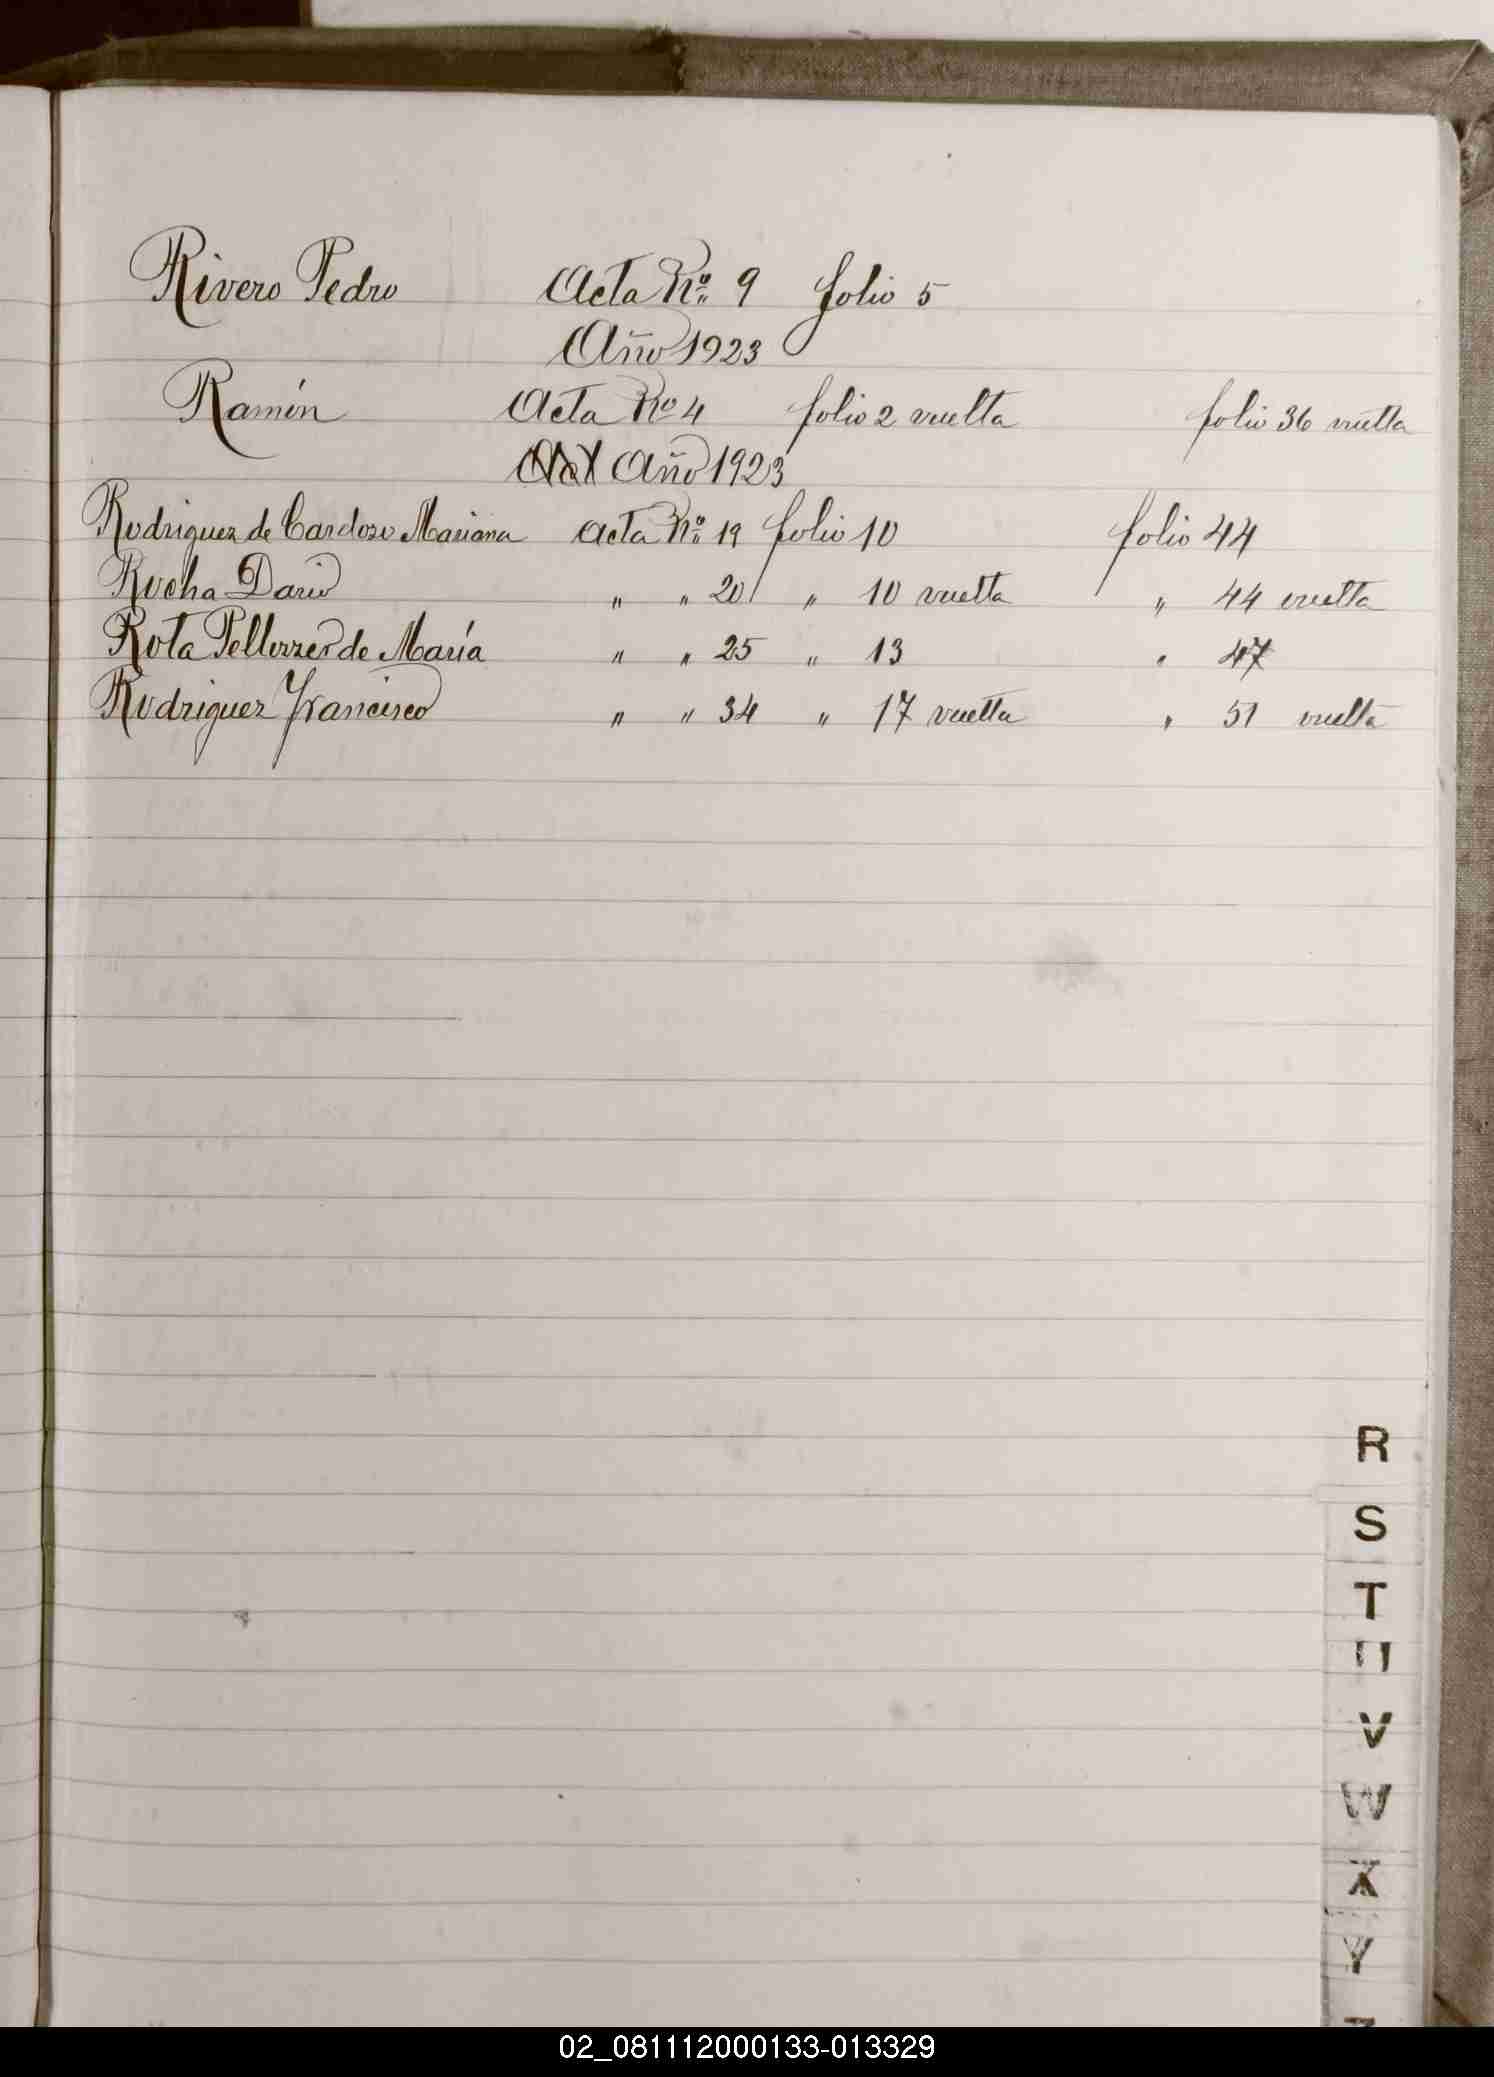 Rivero Pedro Acta No. 9 folio 5
Año 1923
Ramón Acta No 4 folio 2 vuelta folio 36 vuelta
Año 1923
Rodriguez de Cardozo Mariana Acta No. 19 folio 10 folio 44
Rocha Dario " " 20 " 10 vuelta " 44 vuelta
Rota de María " " 25 " 13 " 47
Rodriguez Francisco " " 34 " 17 vuelta " 51 vuelta
R
S
T
U
V
W
X
Y
Z
02_081112000133-013329